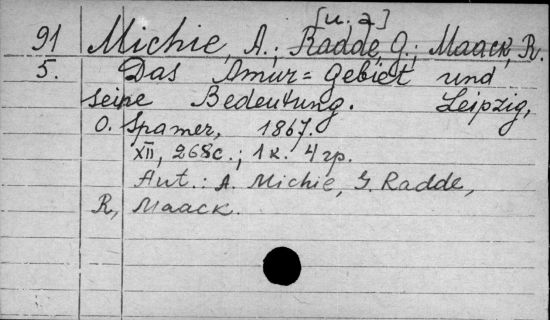 [u. a]
91 Michie, A.; Radde, G.; Maack, R.
5. Das Amur=Gebiet und
seine Bedeutung. Leipzig,
O. Spamer, 1867.
XII, 268c.; 1 к. 4 гр.
Aut.: A. Michie, G. Radde,
R, Maack.